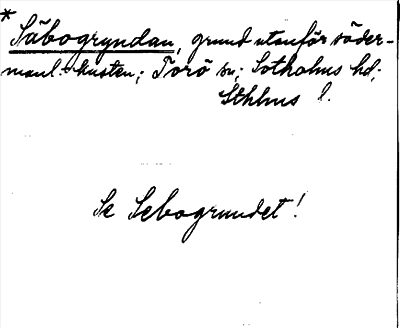 * Säbogryndan, grund utanför söder-
manl. kusten; Torö sn; Sotholms hd;
Sthlms l.
Se Sebogrundet!